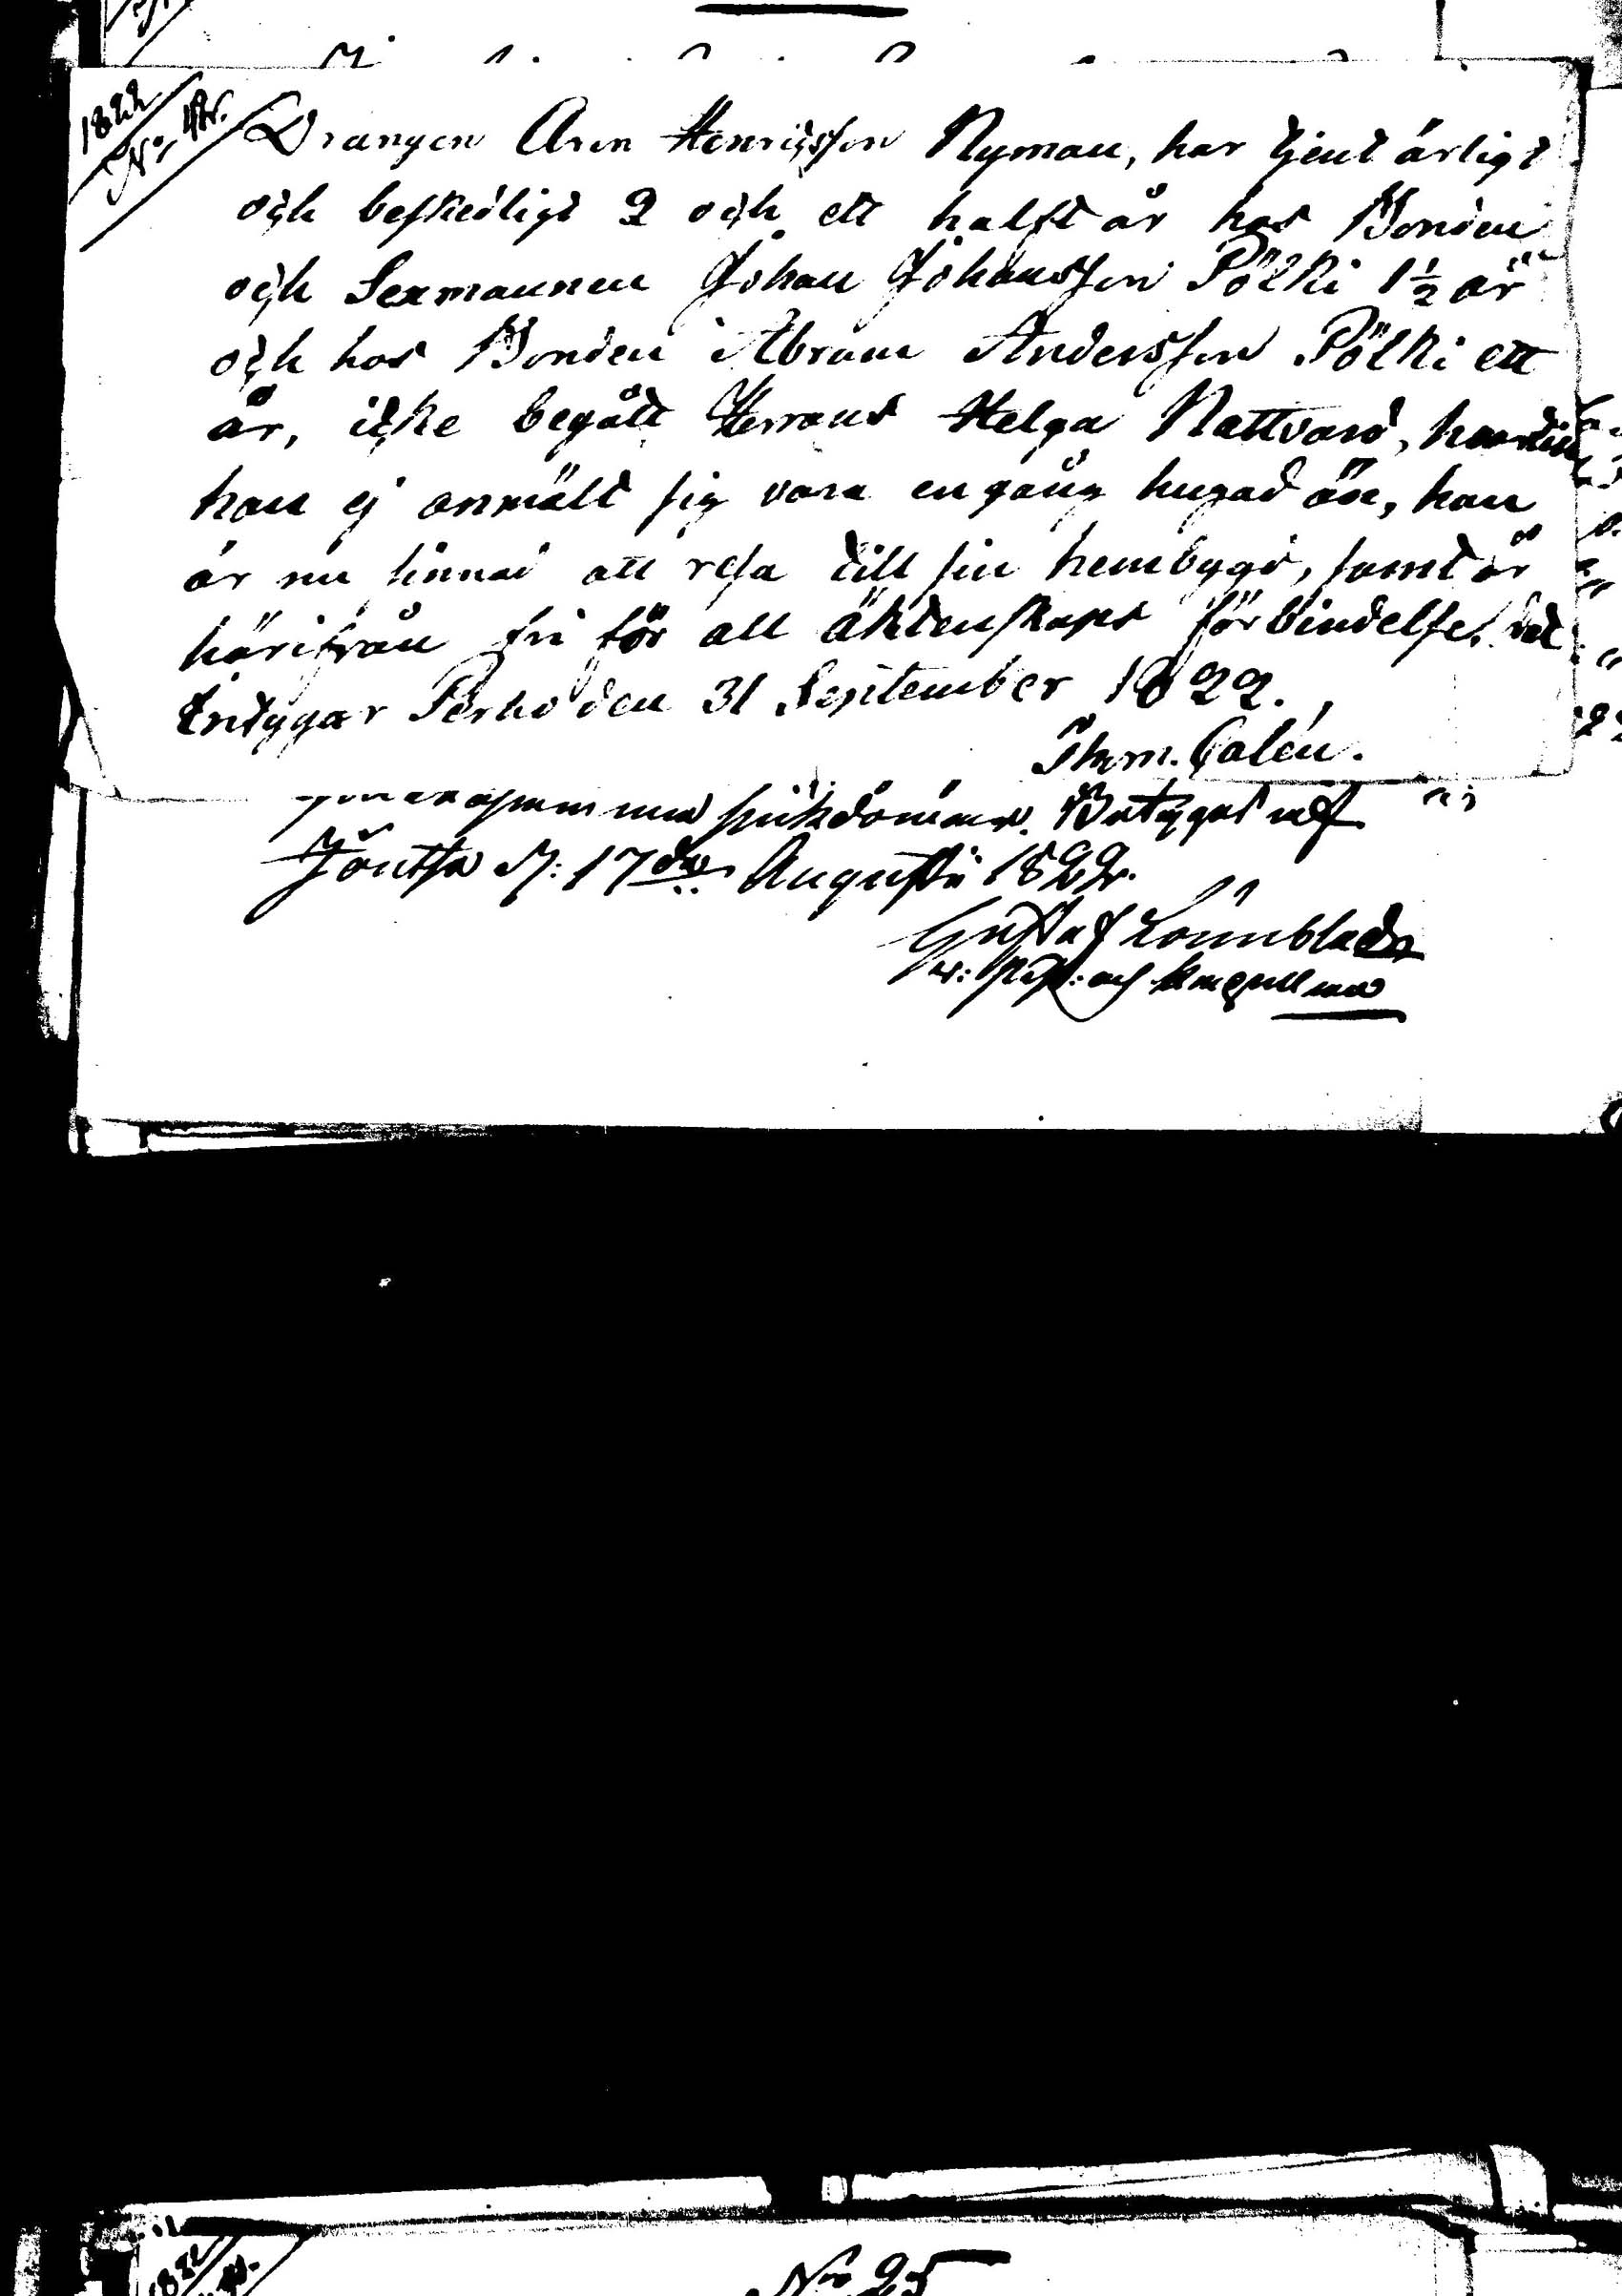 1822
No,
Drängen Aron Henricsson Nyman, har tjent ärligt
och beskedligt 2 och ett halft år hos Bonden
och Sexmannen Johan Johansson Pölki 1½ år
och hos Bonden Abram Andersson Pölki ett
år, icke begått Herrans Helga Nattvard,
han ej anmält sig vara en gång hugad än, han
är nu sinnad att resa till sin hembygd, samt är
härifrån fri för all äktenskaps förbindelse, det
intygar Perho den 31 September 1822.
Thom. Calén.
sjukdomar. Betygas af
Joutsa 17de Augusti 1822.
Gustaf Lönnblad
v: Past: och
1822
No 25